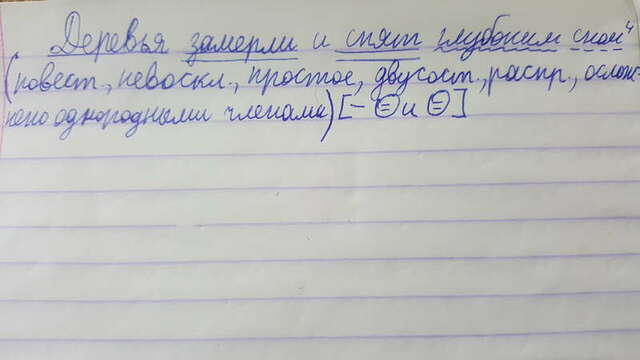 Деревья замерли и спят глубоким сном⁴
(повест., невоскл., простое, двусост., распр., ослож
нено однородными членами) [– ⊜ и ⊜]